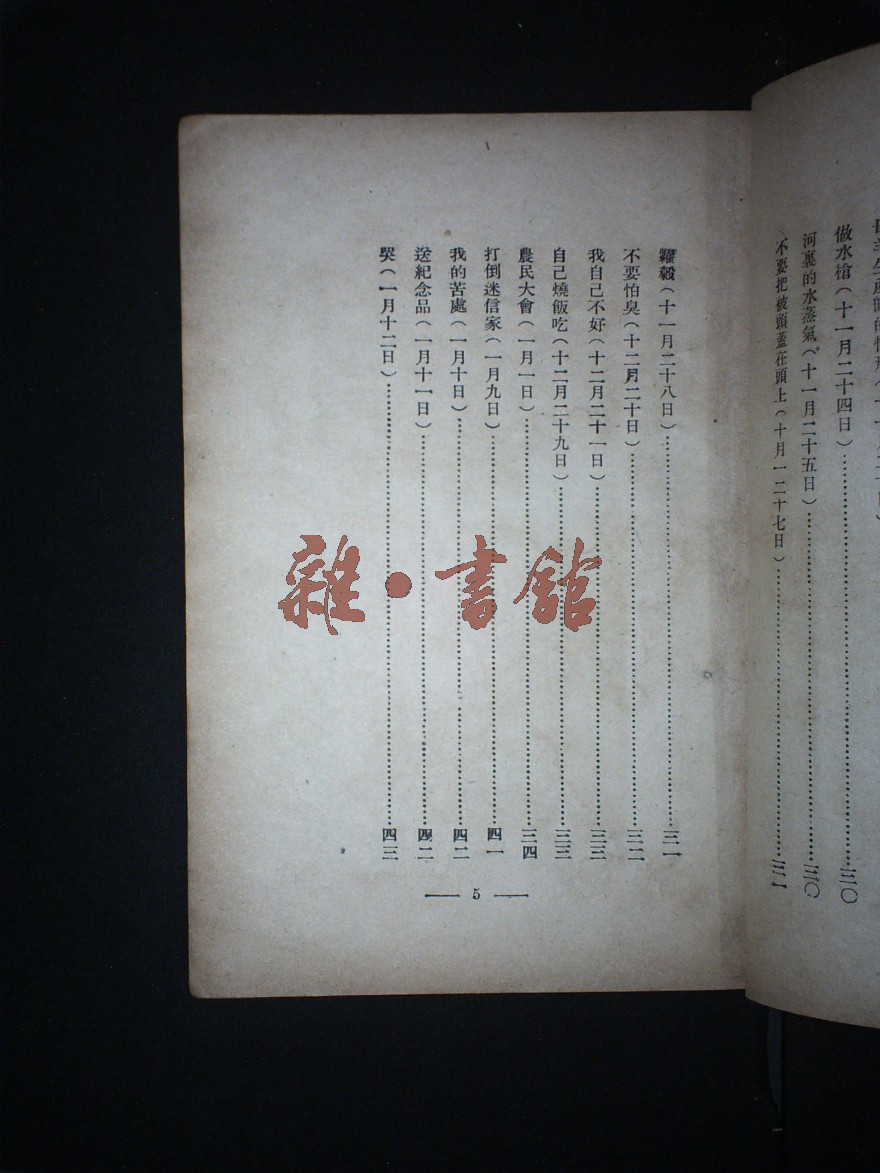 做水槍(十一月二十四日)……三〇
河裏的水蒸氣(十一月二十五日)……三〇
不要把被頭蓋在頭上(十月一二十七日)……三一
糶穀(十一月二十八日)……三一
不要怕臭(十二月二十日)……三二
我自己不好(十二月二十一日)……三三
自己燒飯吃(十二月二十九日)……三三
農民大會(一月一日)……三四
打倒迷信家(一月九日)……四一
我的苦處(一月十日)……四二
送紀念品(一月十一日)……四二
哭(一月十二日)……四三
— 5 —
雜·書館